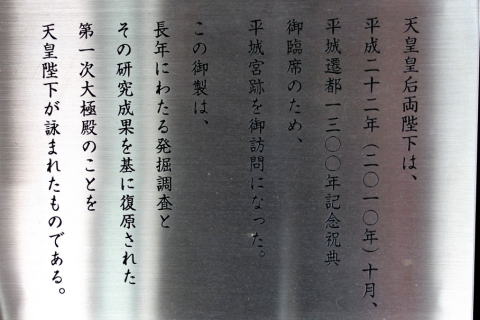 天皇皇后両陛下は、
平成二十二年（二〇一〇年）十月、
平城遷都一三〇〇年記念祝典
御臨席のため、
平城宮跡を御訪問になった。
この御製は、
長年にわたる発掘調査と
その研究成果を基に復原された
第一次大極殿のことを
天皇陛下が詠まれたものである。